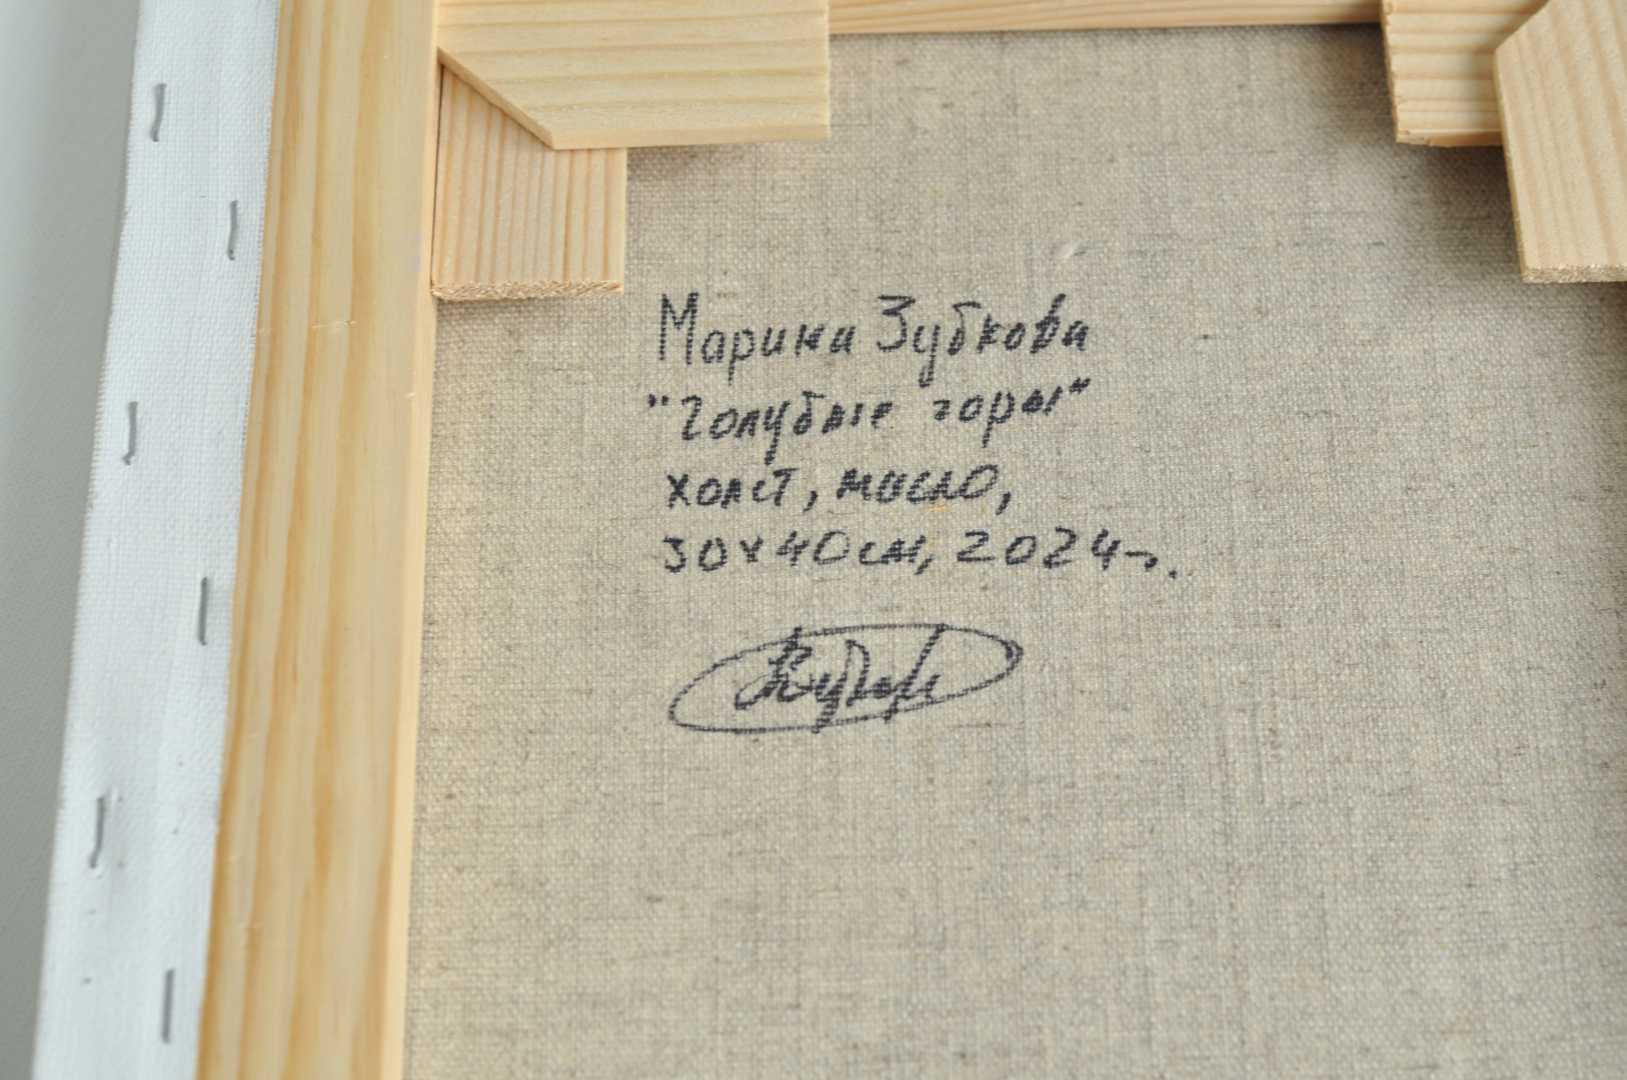 Марина Зубкова
"Голубые горы"
холст, масло,
30х40см, 2024г.